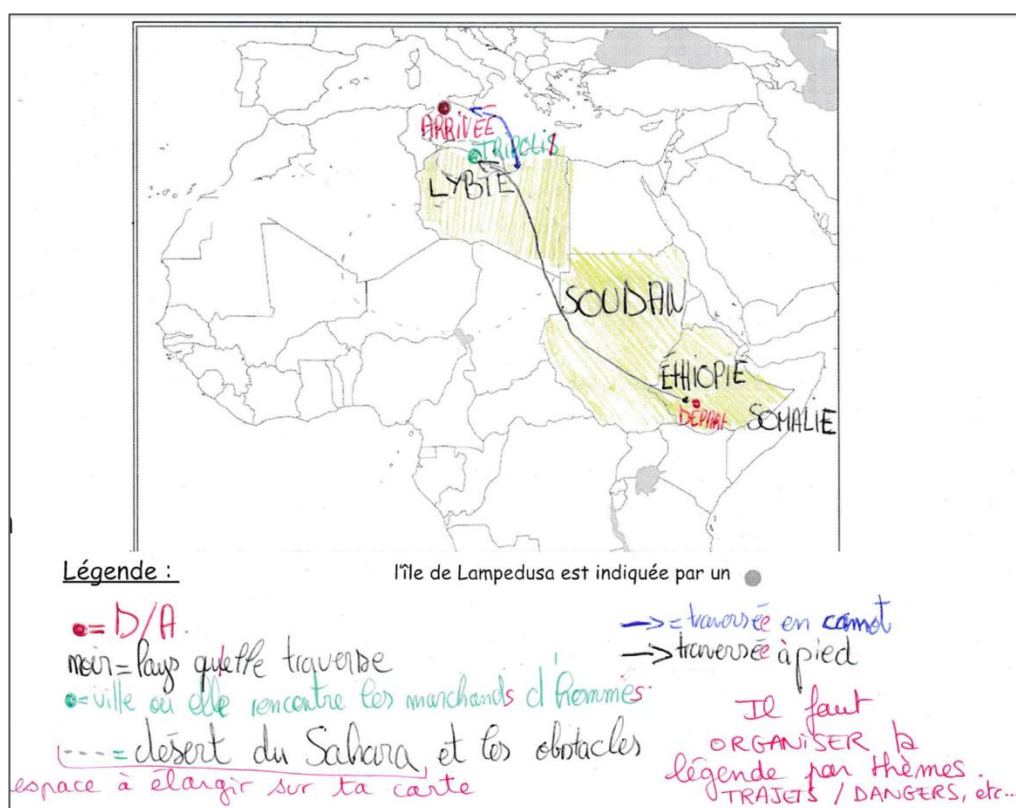 ARRIVÉE
TRIPOLIS
LYBIE
SOUDAN
ÉTHIOPIE
DÉPART
SOMALIE
Légende :
l'île de Lampedusa est indiquée par un
= D/A.
noir = Pays qu'elle traverse
= ville ou elle rencontre les marchands d'hommes.
---- = désert du Sahara et les obstacles
espace à élargir sur ta carte
= traversée en canot
traversée à pied
Il faut
ORGANISER la
légende par thèmes.
TRAJETS / DANGERS, etc...